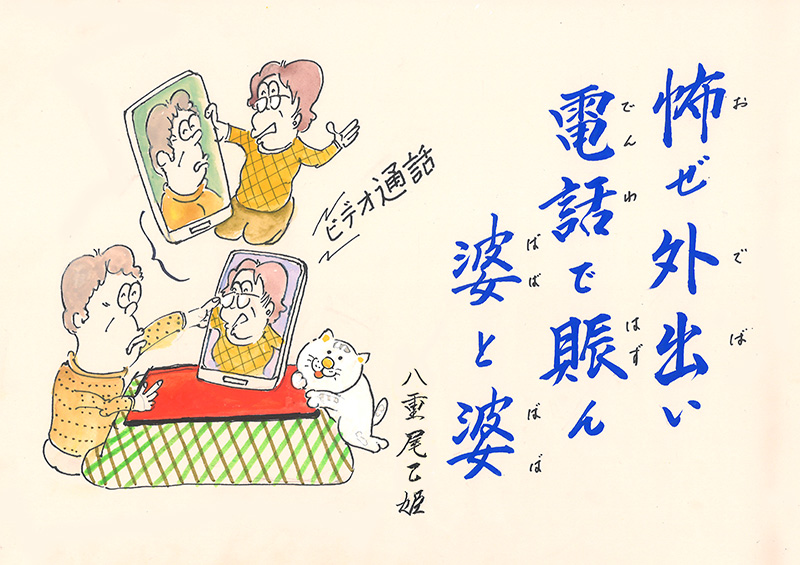 怖ぜ外出い
お でば
電話で賑ん
でんわ はず
婆と婆
ばば ばば
ビデオ通話
八重尾乙姫